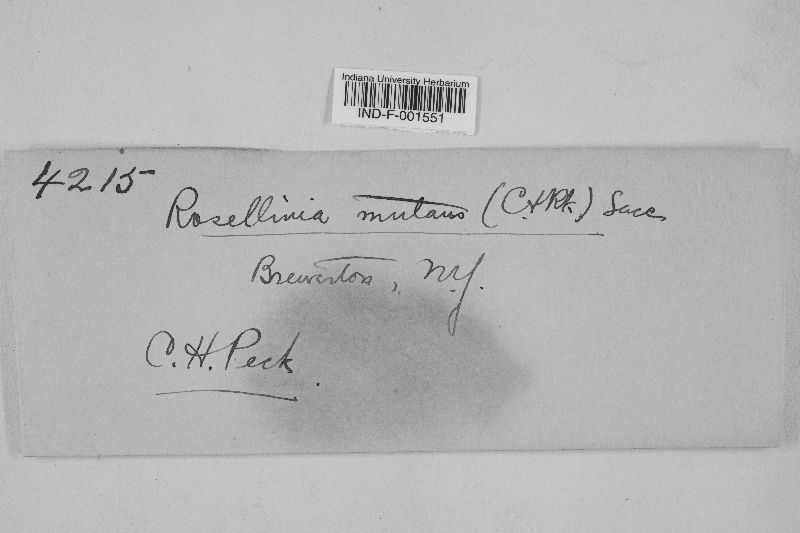 Indiana University Herbarium
IND-F-001551
4215
Rosellinia mutans (C.&Pk.) Sacc
Brewerton, N.Y.
C.H. Peck